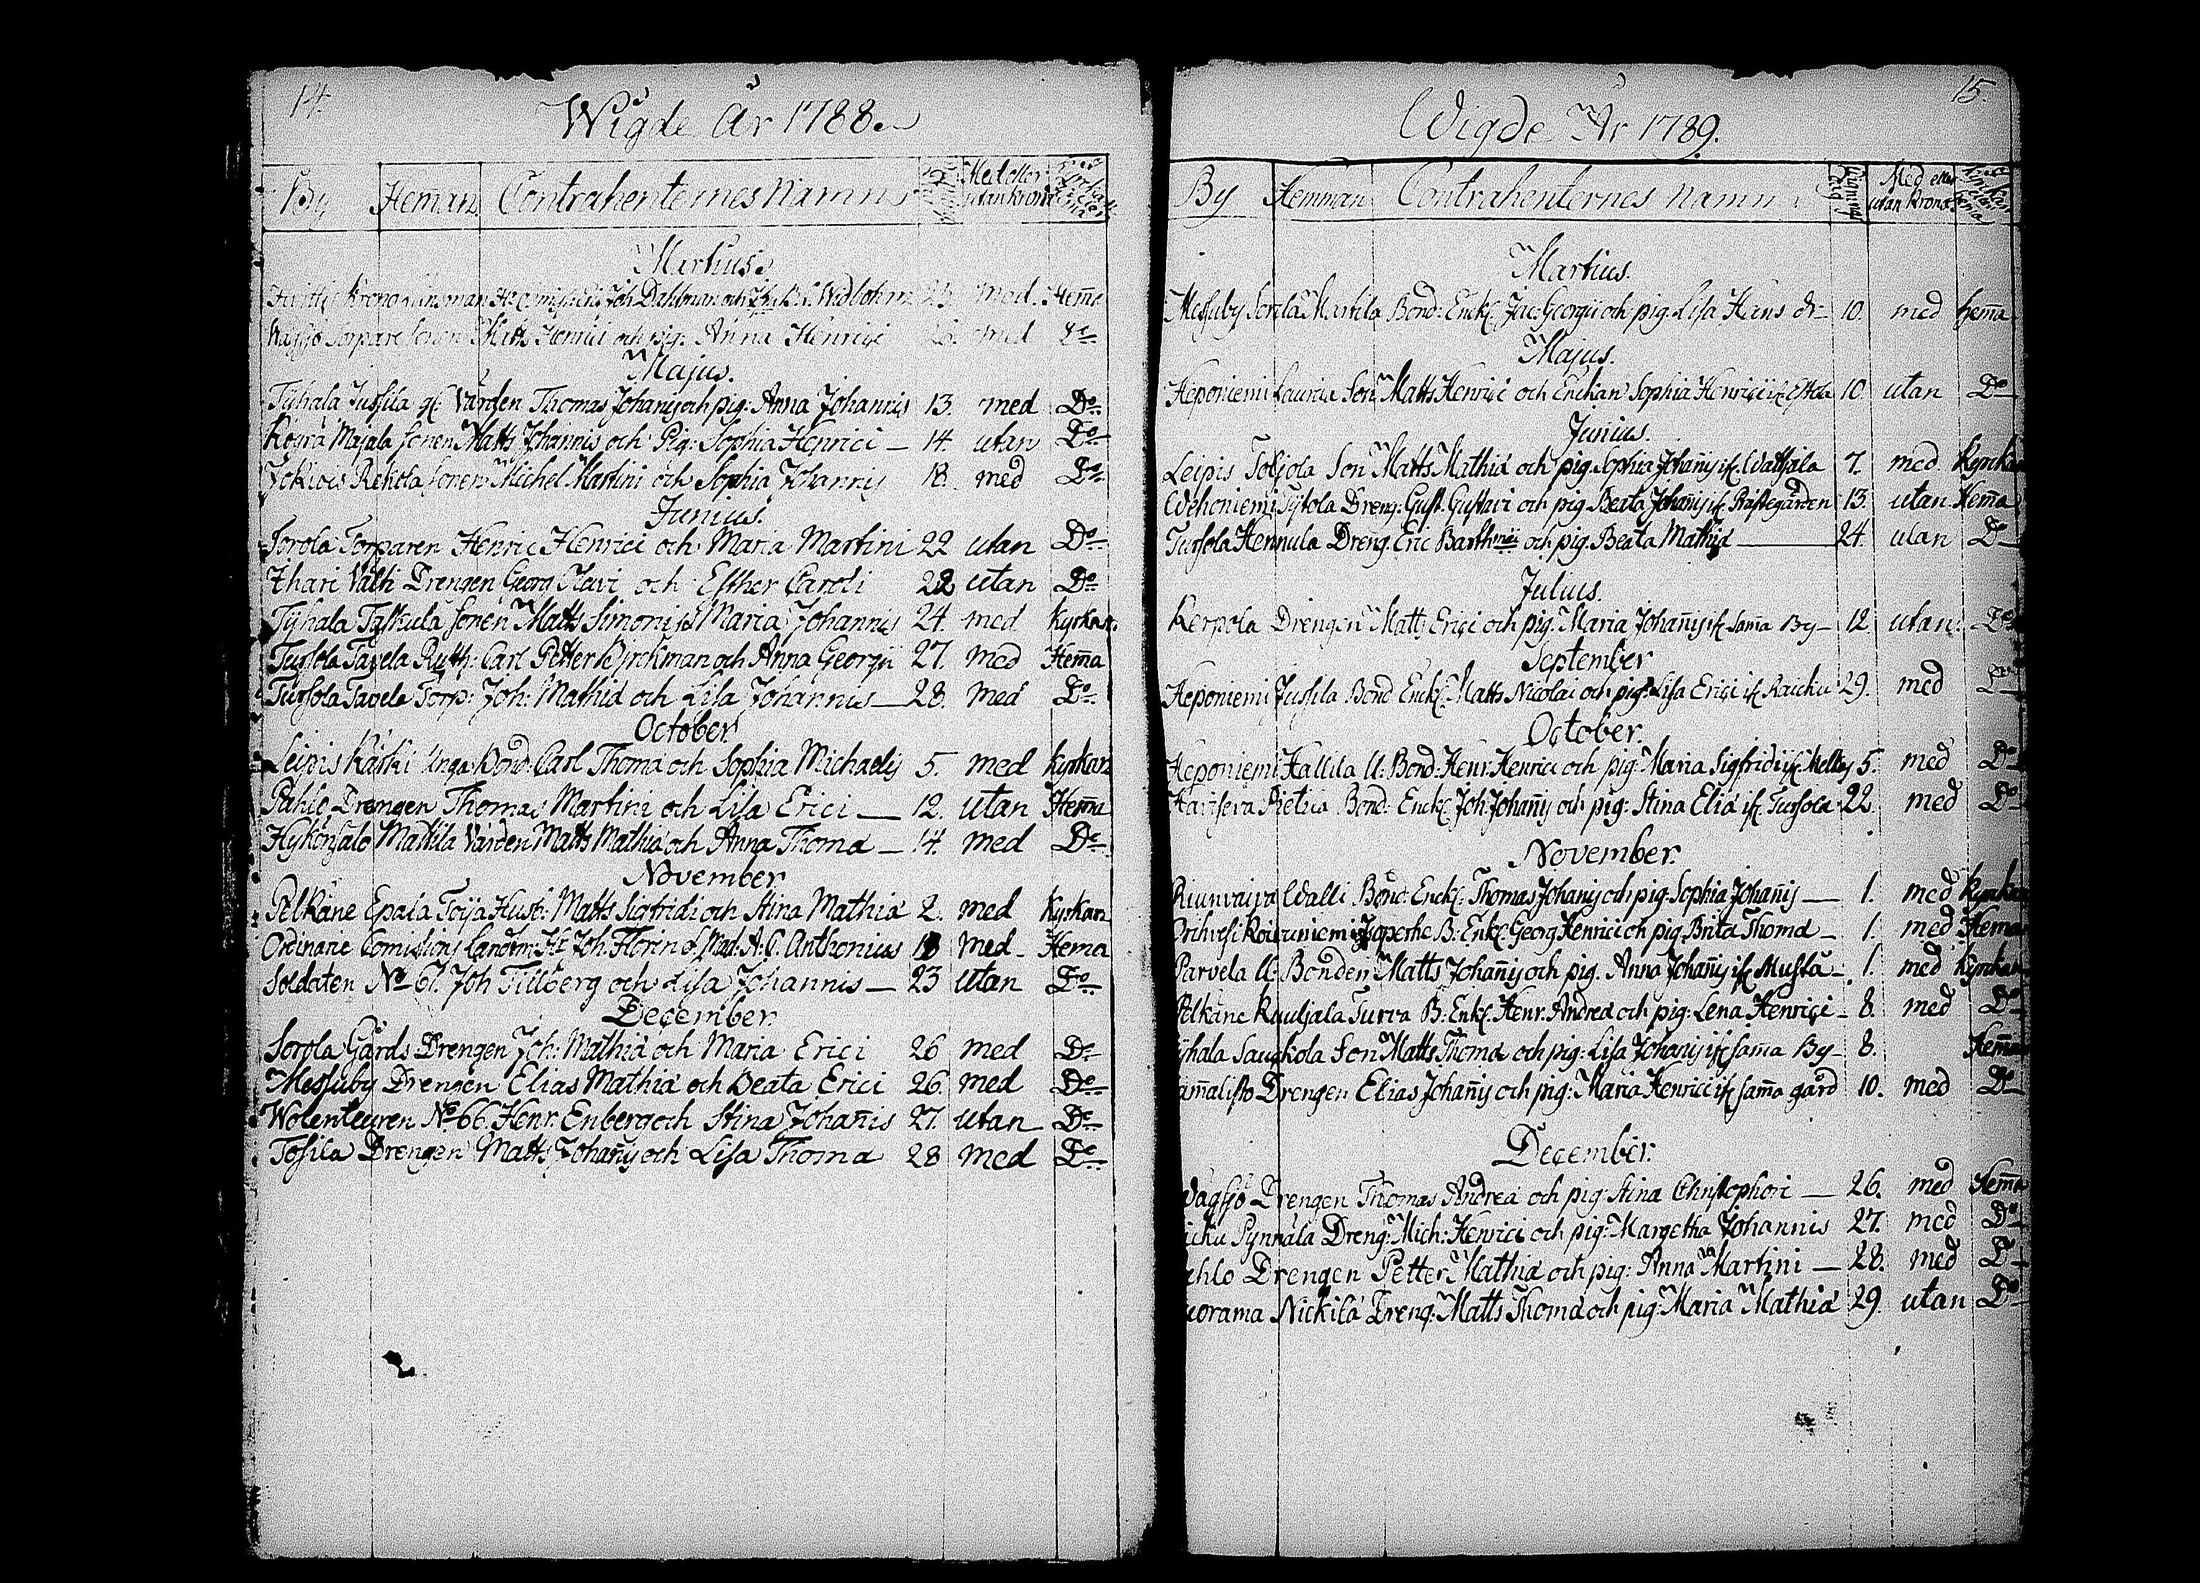 14.
Wigde År 1788.
By Hemman Contrahenternes Namn Med eller utan krona
Martius.
Krono Länsman Joh. Dahlman och Widbohm 25. med. Hem̄a
Wagsjö Torpare sonen Matts Henrici och pig: Anna Henrici 26. med Do
Majus.
Tyhala Jussila Värden Thomas Johañis och pig: Anna Johannis 13. med Do
Majala sonen Matts Johannis och Pig: Sophia Henrici — 14. utan Do
Jokiois Rekola sonen Michel Martini och Sophia Johannis 18. med Do
Junius.
Sorola Torparen Henric Henrici och Maria Martini 22 utan Do
Ihari Välli Drengen Georg och Esther Caroli 22 utan Do
Tyhala Tylkula sonen Matts Simonis Maria Johannis 24 med Kyrkan.
Tursola Tapela Rutth: Carl Petter Björckman och Anna Georgii 27. med Hem̄a
Tursola Tapela Torp: Joh: Mathiæ och Lisa Johannis — 28. med Do
October.
Leipis Karki Unga Bond: Carl Thomæ och Sophia Michaelis 5. med Kyrkan
Pahlo Drengen Thomas Martini och Lisa Erici — 12. utan Hem̄a
Mattila Värden Matts Mathiæ och Anna Thomæ — 14. med Do
November
Pelkäne Epala Toija Husb: Matts Sigfridi och Stina Mathiæ 2. med Kyrkan
Ordinarie Comissions Landtm: Hr Joh. Florin & Mad: A. C. Anthonius med — Hema
Soldaten No 67. Joh Tillberg och Lisa Johannis — 23 utan Do
December.
Sorola Gårds Drengen Joh: Mathiæ och Maria Erici 26 med Do
Messuby Drengen Elias Mathiæ och Beata Erici 26. med Do
Wolenteuren No 66. Henr. Enberg och Stina Johañis 27. utan Do
Tosila Drengen Matts Johañis och Lisa Thomæ 28 med Do
15.
Wigde År 1789.
By Hemman Contrahenternes Namn Wigning Tid Med eller utan krona
Martius.
Messuby Sorola Martila Bond: Enck: Jac: Georgii och pig: Lisa Hans dr— 10. med hem̄a
Majus.
Heponiemi Lauria Son Matts Henrici och Enckan Sophia Henrici if: 10. utan Do
Junius.
Leipis Toljola Son Matts Mathiæ och pig: Sophia Johañis if: Watjala 7. med Kyrkan
Wehoniemi Sytola Dreng: Gust. Gustavi och pig: Beata Johañis if: Prästegården 13. utan Hem̄a
Tursola Hennula Dreng. Eric Barthmæi och pig. Beata Mathiæ — 24. utan Do
Julius.
Kerpola Drengen Matts Erici och pig: Maria Johañis if: sama By— 12. utan: Do
September
Heponiemi Jussila Bond Enck: Matts Nicolai och pig: Lisa Erici if: Kaicku 29. med Do
October.
Heponiemi Hallila U: Bond: Henr. Henrici och pig: Maria Sigfridi if: 5. med Do
Bond: Enck: Joh. Johañis och pig: Stina Eliæ if: Tursola 22. med Do
November.
Walli Bond: Enck: Thomas Johañis och pig: Sophia Johañis — 1. med Kyrkan
Orihvesi B: Enk: Georg Henrici och pig: Brita Thomæ — 1. med Hema
Parvela U: Bonden Matts Johañis och pig. Anna Johañis if: 1. med Kyrkan
Pelkäne Kauljala Turva B: Enk: Henr. Andreæ och pig: Lena Henrici — 8. med Do
yhala Saugkola Son Matts Thomæ och pig: Lisa Johañis if: sama By— 8. Hem̄a
Drengen Elias Johañis och pig: Maria Henrici if: sam̄a gård 10. med Do
December.
Wagsjö Drengen Thomas Andreæ och pig: Stina Christophori — 26. med Hem̄a
Pynnälä Dreng: Mich: Henrici och pig: Margetha Johannis 27. med Do
ahlo Drengen Petter Mathiæ och pig: Anna Martini — 28. med Do
uorama Nickilä Dreng: Matts Thomæ och pig: Maria Mathiæ 29. utan Do